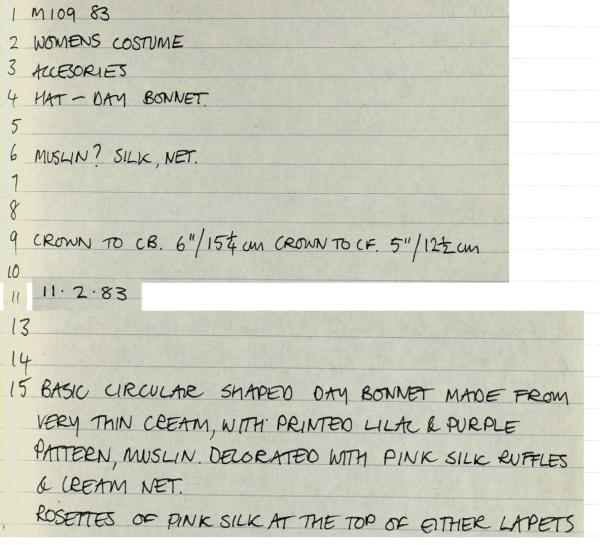 1 M109 83
2 WOMENS COSTUME
3 ACCESORIES
4 HAT - DAY BONNET.
5
6 MUSLIN? SILK, NET.
7
8
9 CROWN TO CB. 6"/15¼ cm CROWN TO CF. 5"/12½ cm
10
11 11·2·83
13
14
15 BASIC CIRCULAR SHAPED DAY BONNET MADE FROM
VERY THIN CREAM, WITH PRINTED LILAC & PURPLE
PATTERN, MUSLIN. DECORATED WITH PINK SILK RUFFLES
& CREAM NET.
ROSETTES OF PINK SILK AT THE TOP OF EITHER LAPETS